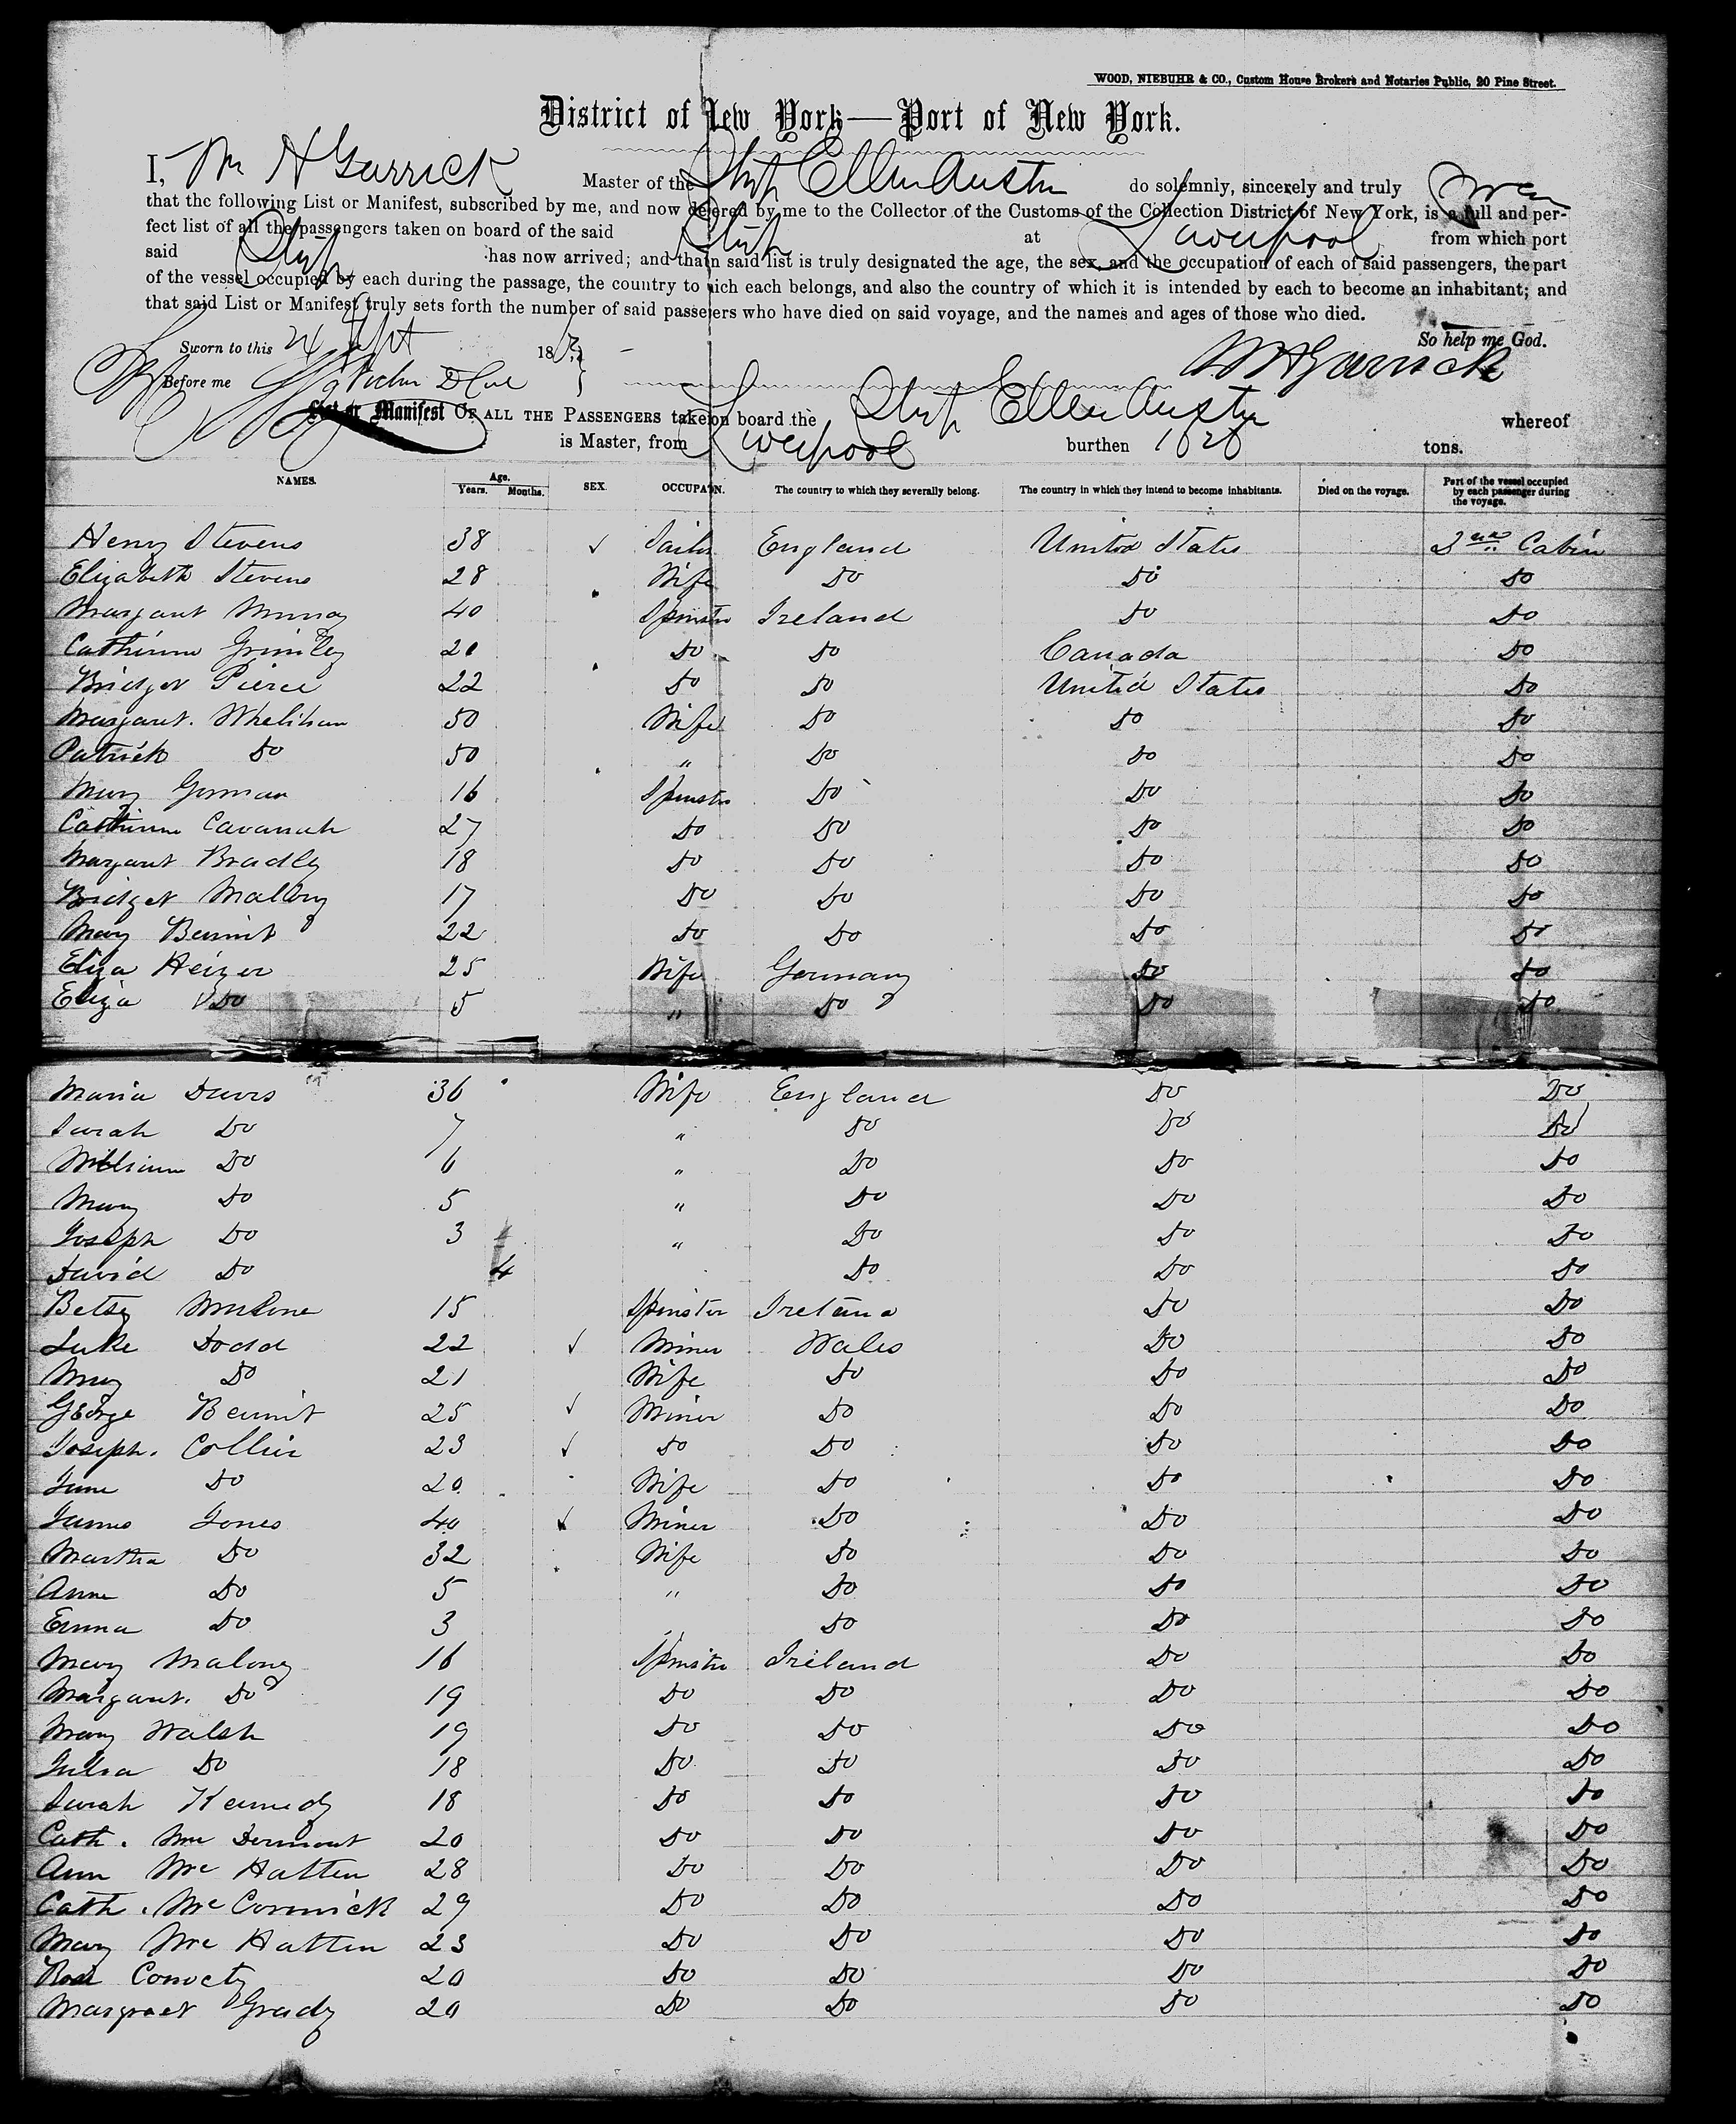 WOOD, NIEBUHR & CO., Custom House Brokers and Notaries Public, 20 Pine Street.
District of New York—Port of New York.
I, Wm H Garrick Master of the Ship Ellen Austin do solemnly, sincerely and truly
that the following List or Manifest, subscribed by me, and now delivered by me to the Collector of the Customs of the Collection District of New York, is a full and per-
fect list of all the passengers taken on board of the said Ship at Liverpool from which port
said Ship has now arrived; and that in said list is truly designated the age, the sex, and the occupation of each of said passengers, the part
of the vessel occupied by each during the passage, the country to which each belongs, and also the country of which it is intended by each to become an inhabitant; and
that said List or Manifest truly sets forth the number of said passengers who have died on said voyage, and the names and ages of those who died.
So help me God.
Sworn to this 24 Sept 18
Before me
W H Garrick
List or Manifest OF ALL THE PASSENGERS taken on board the Ship Ellen Austin whereof
is Master, from Liverpool burthen 1626 tons.
NAMES. Age. Years. Months. SEX. OCCUPATION. The country to which they severally belong. The country in which they intend to become inhabitants. Died on the voyage. Part of the vessel occupied by each passenger during the voyage.
Henry Stevens 38 ✓ England United States 2nd Cabin
Elizabeth Stevens 28 Wife Do Do Do
Margaret Murray 40 Spinster Ireland Do Do
Catherine Grimley 20 Do Do Canada Do
Bridget Pierce 22 Do Do United States Do
Margaret Whelihan 50 Wife Do Do Do
Patrick Do 50 " Do Do Do
Mary Gorman 16 Spinster Do Do Do
Catherine Cavanah 27 Do Do Do Do
Margaret Bradly 18 Do Do Do Do
Bridget Mallony 17 Do Do Do Do
Mary Bennit 22 Do Do Do Do
Eliza Heizer 25 Wife Germany Do Do
Eliza Do 5 " Do Do Do
Maria Davis 36 Wife England Do Do
Sarah Do 7 " Do Do Do
William Do 6 " Do Do Do
Mary Do 5 " Do Do Do
Joseph Do 3 " Do Do Do
David Do 4 Do Do Do
Betsy Malone 15 Spinster Ireland Do Do
Luke Dodd 22 ✓ Miner Wales Do Do
Mary Do 21 Wife Do Do Do
George Bennit 25 ✓ Miner Do Do Do
Joseph. Collier 23 ✓ Do Do Do Do
Jane Do 20 Wife Do Do Do
James Jones 40 ✓ Miner Do Do Do
Martha Do 32 Wife Do Do Do
Anne Do 5 " Do Do Do
Emma Do 3 " Do Do Do
Mary Malony 16 Spinster Ireland Do Do
Margaret. Do 19 Do Do Do Do
Mary Walsh 19 Do Do Do Do
Julia Do 18 Do Do Do Do
Sarah Kennedy 18 Do Do Do Do
Cath. Mc Dermont 20 Do Do Do Do
Ann Mc Hatten 28 Do Do Do Do
Cath. Mc Cormick 29 Do Do Do Do
Mary Mc Hatten 23 Do Do Do Do
Rose 20 Do Do Do Do
Margaret Grady 20 Do Do Do Do